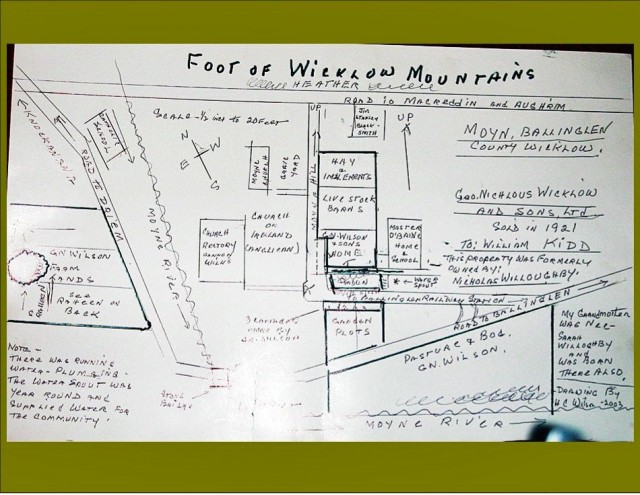 FOOT OF WICKLOW MOUNTAINS
HEATHER
ROAD to MACREDDIN AND AUGHRIM
SCALE - 1/2 inch to 20 Feet
N
E
W
S
KNOCKANANA
ROAD TO
SCHOOL
MOYNE RIVER
MOYNE
CHURCH
GRAVE
YARD
UP
MOYNE HILL
JIM
BLACK-
SMITH
UP
HAY
&
IMPLEMENTS
LIVE STOCK
BARNS
G.N. WILSON
& SONS
HOME
MASTER
O'BRINE
HOME
&
SCHOOL
CHURCH
RECTORY
CHURCH
OF
IRELAND
(ANGLICAN)
WATER
SPOUT
TO BALLINGLEN RAILWAY STATION
ROAD TO BALLINGLEN
GARDEN
PLOTS
3
OWNED BY
PASTURE & BOG
GN. WILSON.
MOYN, BALLINGLEN
COUNTY WICKLOW.
GEO. NICHLOUS WICKLOW
AND SONS, LTD.
SOLD IN 1921
TO: WILLIAM KIDD
THIS PROPERTY WAS FORMERLY
OWNED BY:
NICHOLAS WILLOUGHBY.
G.N. WILSON
FARM
LANDS
SEE
RAHEEN ON
BACK
NOTE -
THERE WAS RUNNING
WATER - PLUMBING -
THE WATER SPOUT WAS
YEAR ROUND AND
SUPPLIED WATER FOR
THE COMMUNITY.
STONE
BRIDGE
MY GRANDMOTHER
WAS NEE -
SARAH
WILLOUGHBY
AND
WAS BORN
THERE ALSO.
- DRAWING BY
H.C. Wilson - 2003
MOYNE RIVER